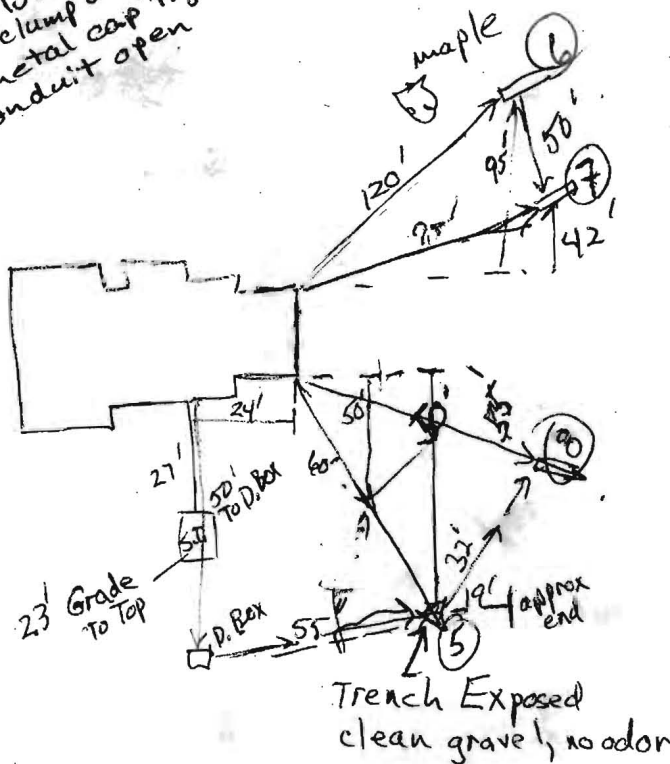 clamp
metal cap
conduit open
maple
1
120'
95'
50'
7
42'
24'
50'
27'
50'
To D.Box
S.T
23' Grade
To Top
D.Box
55
32'
19'
approx
end
5
Trench Exposed
clean gravel, no odor